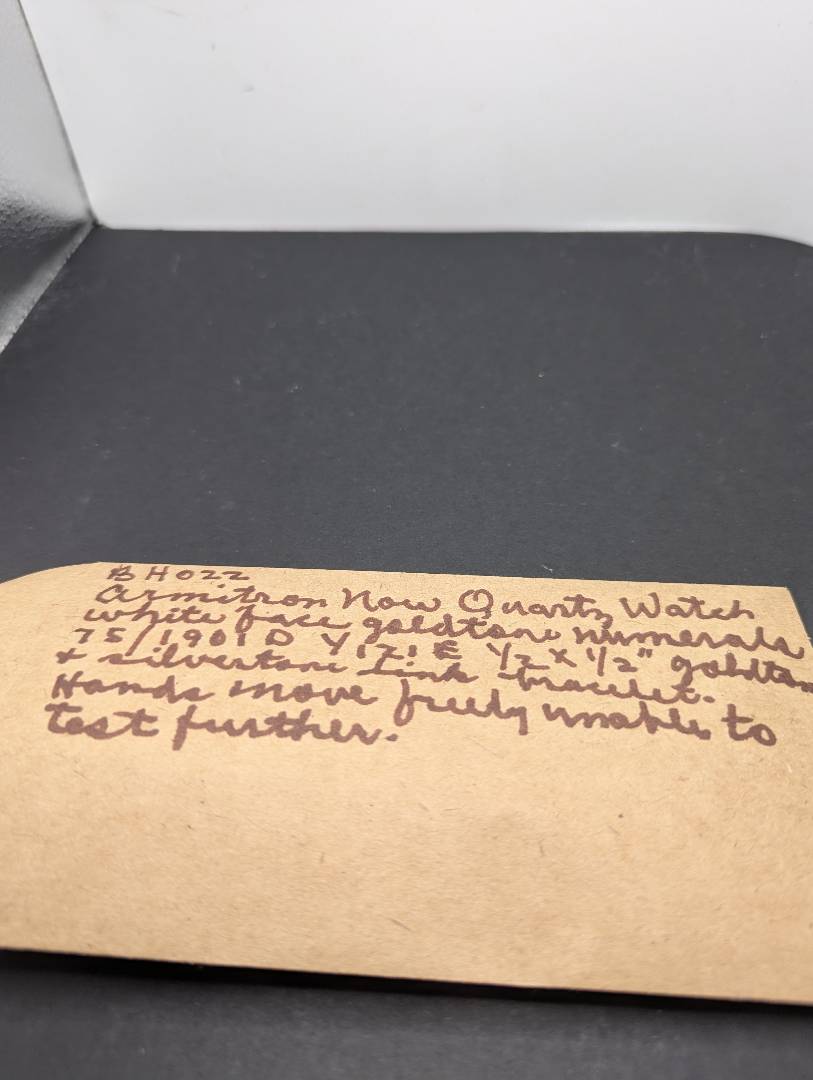 BH022
Armitron Now Quartz Watch
white face goldtone numerals
75/1901 D Y121E 1/2 x 1/2" goldtone
+ silvertone Link bracelet.
Hands move freely unable to
test further.